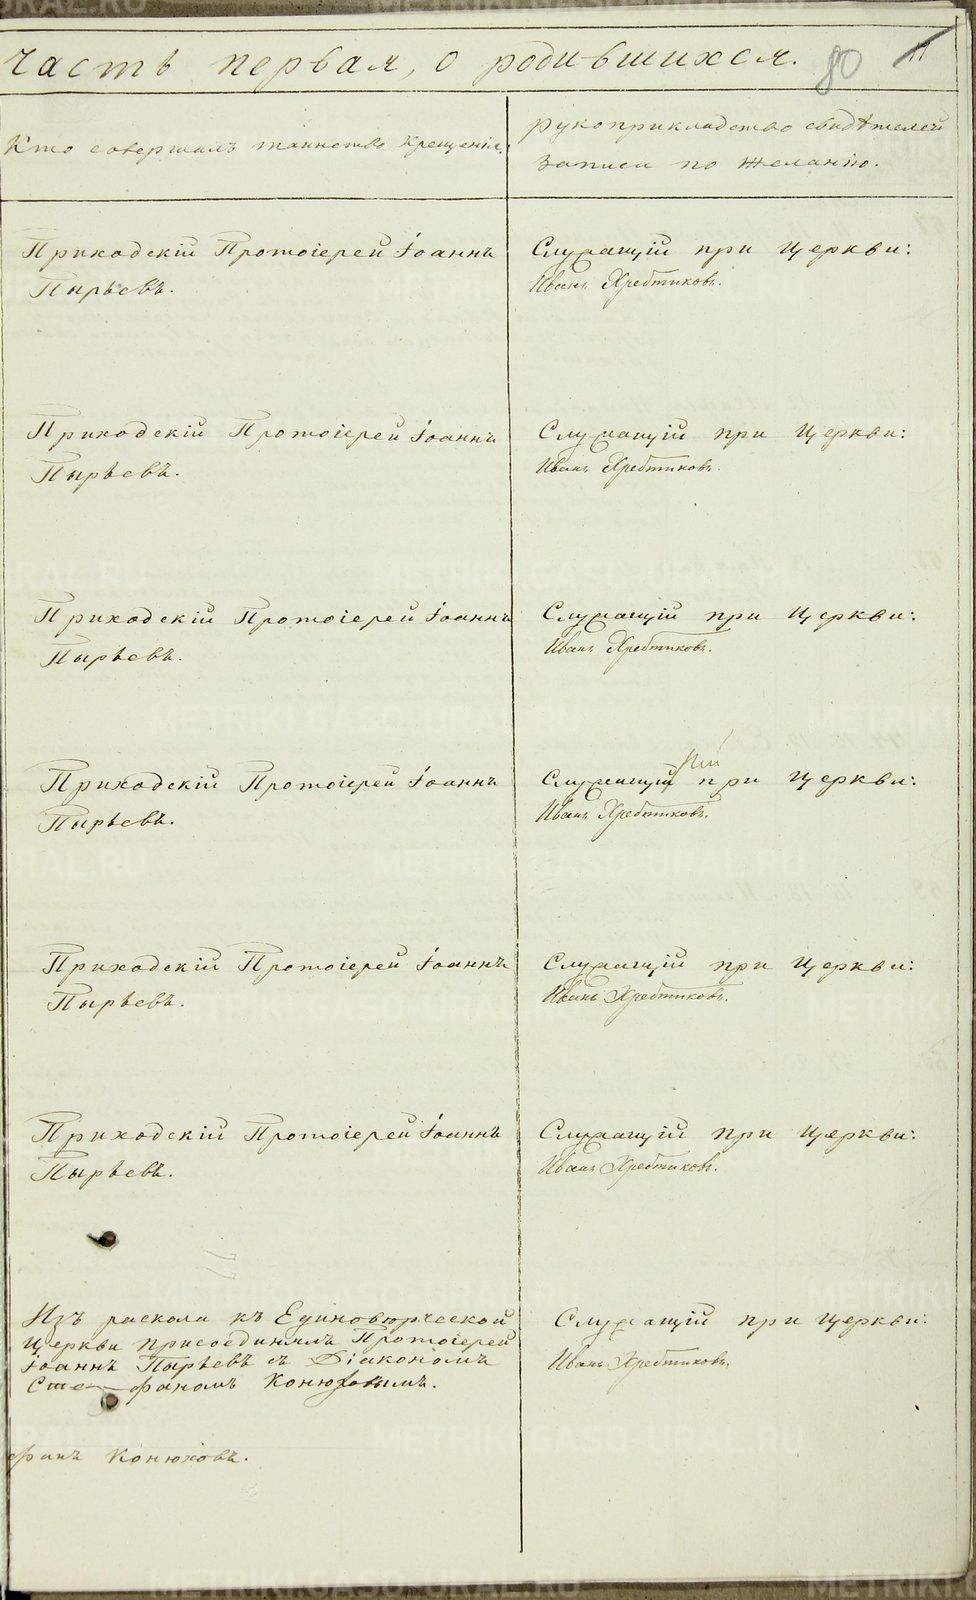 Часть первая, о родившихся. 80
Кто совершалъ таинство крещенія.
рукоприкладство свидѣтелей
записи по желанію.
Приходскій Протоіерей Іоаннъ
Пырьевъ.
Служащій при Церкви:
Иванъ Хребтиковъ.
Приходскій Протоіерей Іоаннъ
Пырьевъ.
Служащій при Церкви:
Иванъ Хребтиковъ.
Приходскій Протоіерей Іоаннъ
Пырьевъ.
Служащій при Церкви:
Иванъ Хребтиковъ.
Приходскій Протоіерей Іоаннъ
Пырьевъ.
Служащій при Церкви:
Иванъ Хребтиковъ.
Приходскій Протоіерей Іоаннъ
Пырьевъ.
Служащій при Церкви:
Иванъ Хребтиковъ.
Приходскій Протоіерей Іоаннъ
Пырьевъ.
Служащій при Церкви:
Иванъ Хребтиковъ.
Изъ раскола къ Единовѣрческой
Церкви присоединялъ Протоіерей
Іоаннъ Пырьевъ съ Діакономъ
Стефаномъ Конюховымъ.
Служащій при Церкви:
Иванъ Хребтиковъ.
фанъ Конюховъ.
METRIKI.GASO-URAL.RU